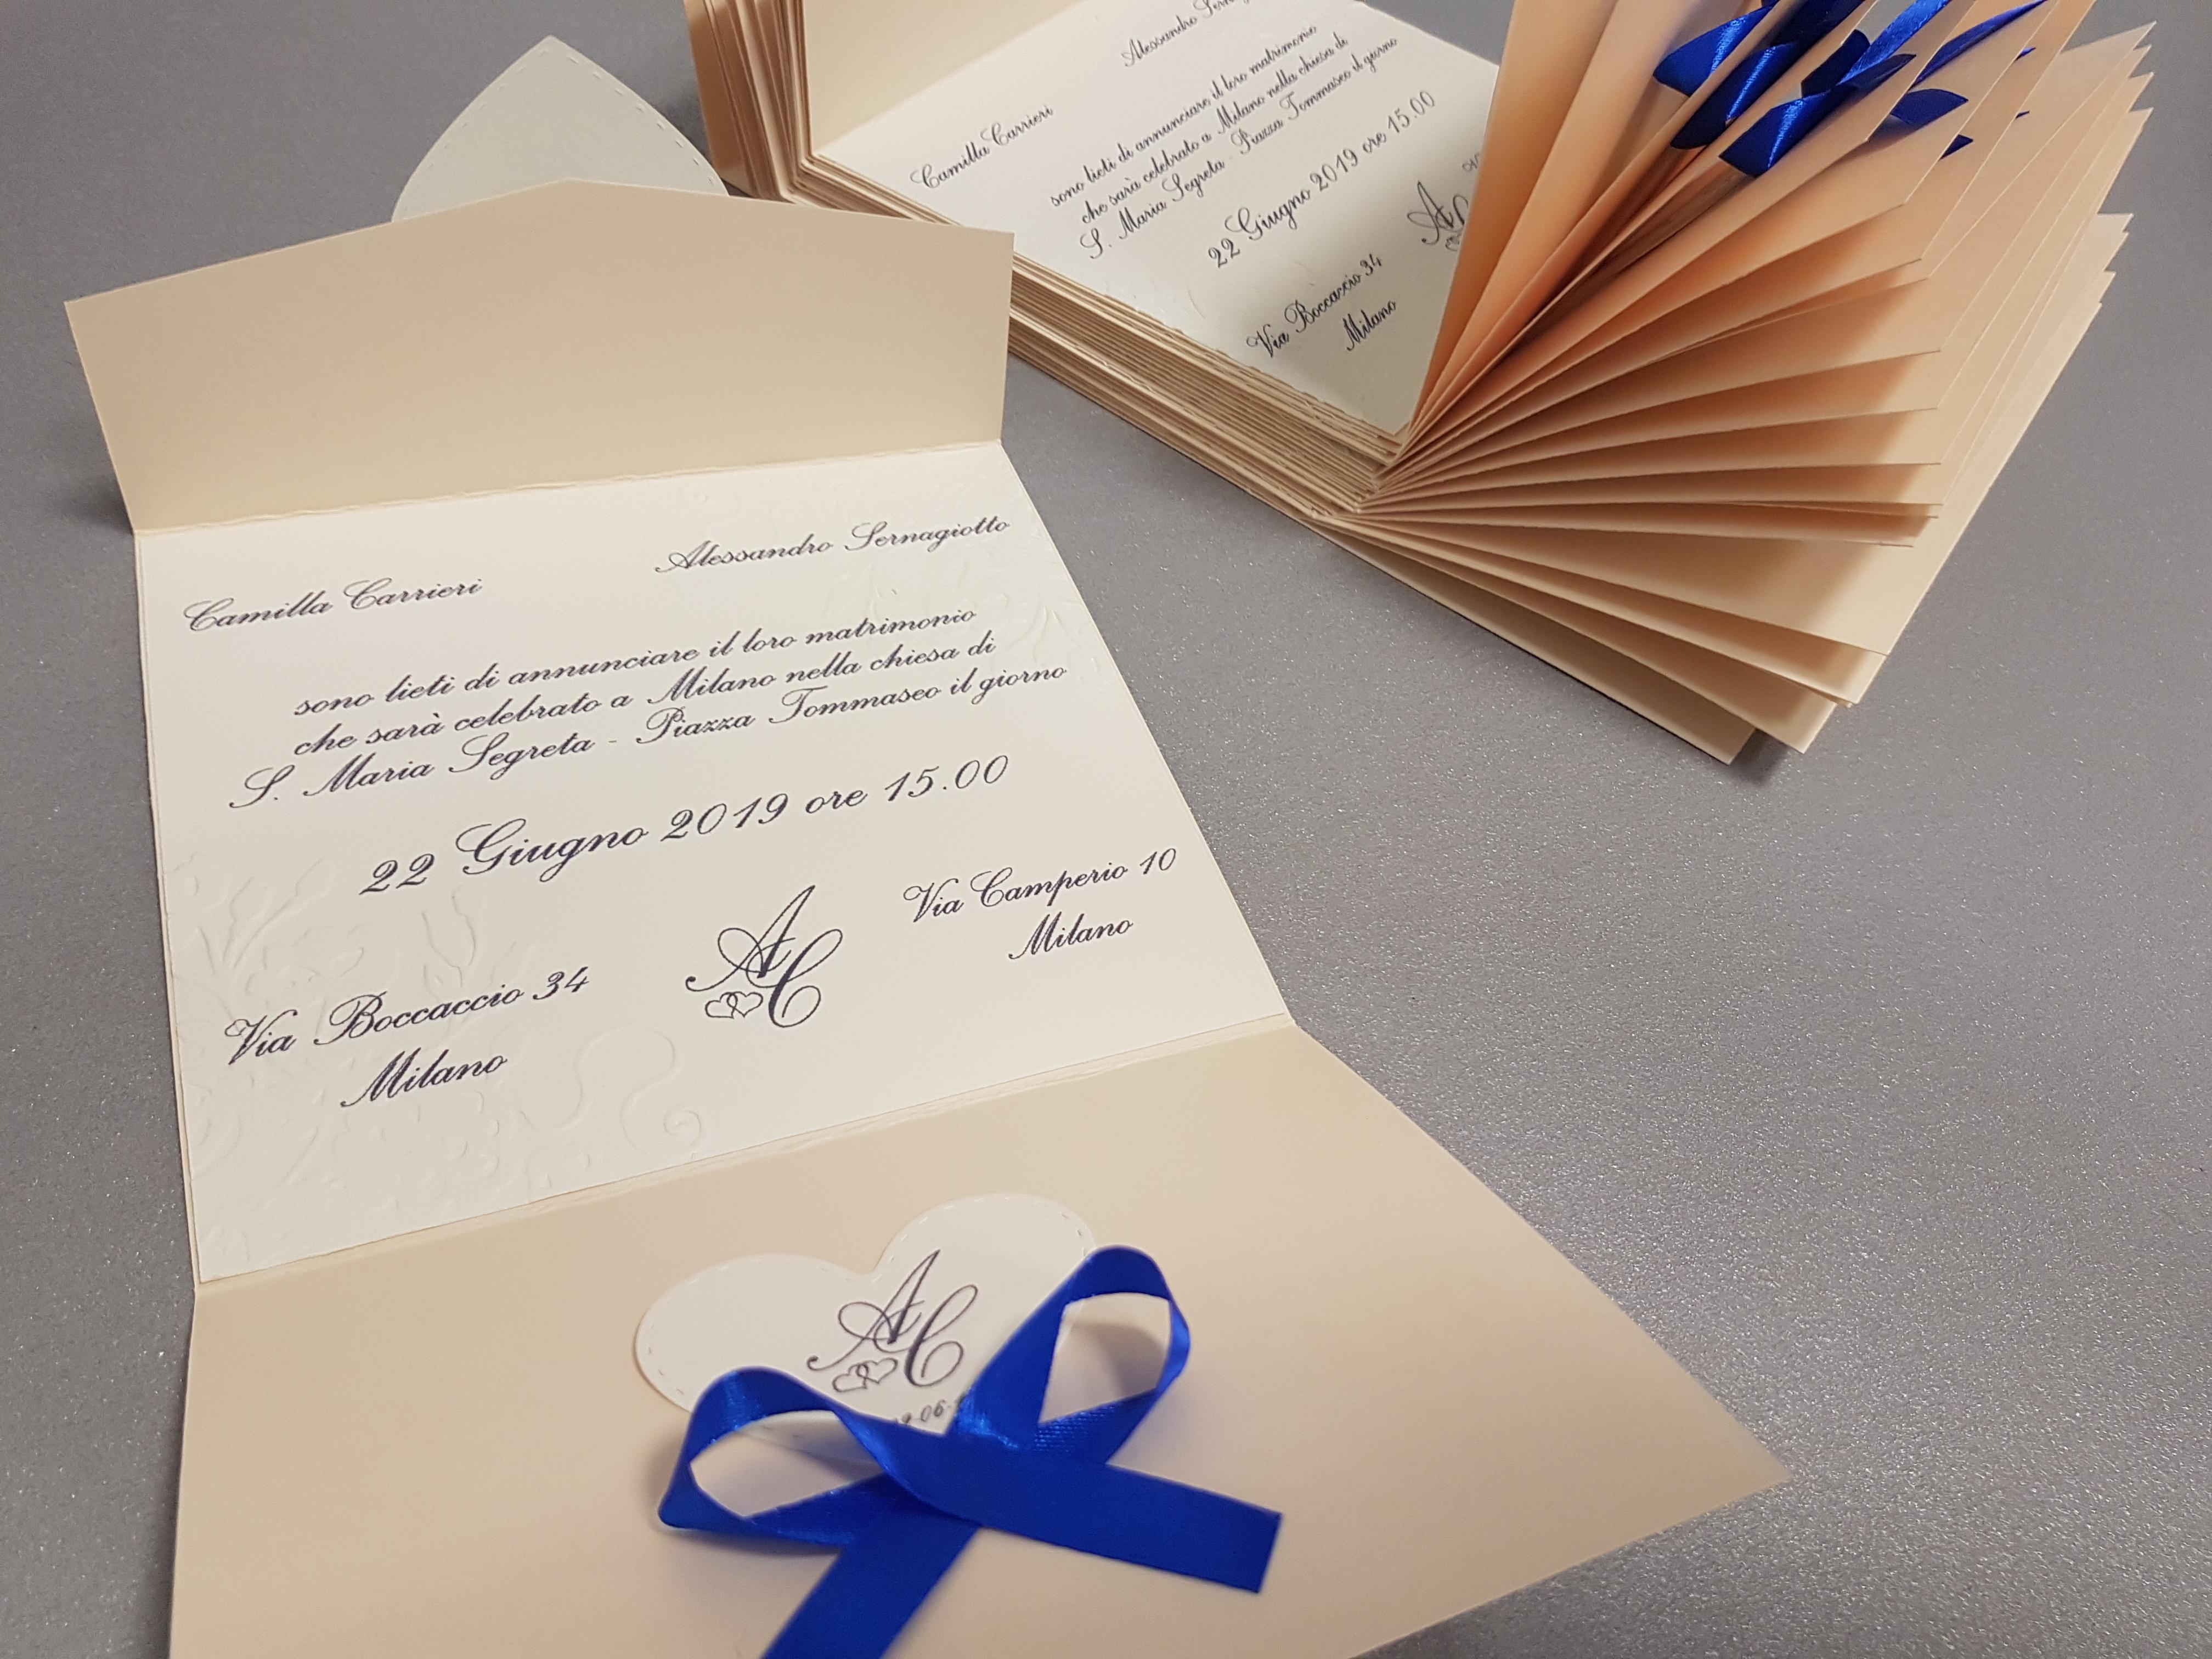 Camilla Carrieri
Alessandro Sernagiotto
sono lieti di annunciare il loro matrimonio
che sarà celebrato a Milano nella chiesa di
S. Maria Segreta - Piazza Tommaseo il giorno
22 Giugno 2019 ore 15.00
Via Boccaccio 34
Milano
AC
Via Camperio 10
Milano
AC
Camilla Carrieri
Alessandro
sono lieti di annunciare il loro matrimonio
che sarà celebrato a Milano nella chiesa di
S. Maria Segreta - Piazza Tommaseo il giorno
22 Giugno 2019 ore 15.00
Via Boccaccio 34
Milano